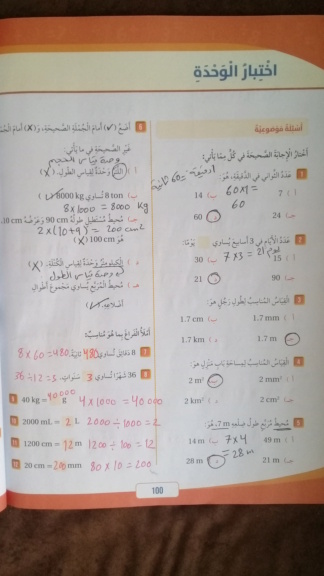 اخْتِبارُ الْوَحْدَةِ
أَسْئِلَةٌ مَوْضوعِيَّةٌ
أَخْتارُ الْإِجابَةَ الصَّحيحَةَ في كُلٍّ مِمّا يَأْتي:
1 عَدَدُ الثَّواني في الدَّقيقَةِ، هُوَ:
الدقيقة = 60 ثانية
أ ) 7 ب) 14
60×1=
60
جـ) 24 د) 60
2 عَدَدُ الْأَيّامِ في 3 أَسابيعَ يُساوي يَوْمًا:
أ ) 15 ب) 30
7×3=21 يوم
جـ) 21 د) 90
3 الْقِياسُ الْمُناسِبُ لِطولِ رَجُلٍ هُوَ:
أ ) 1.7 mm ب) 1.7 cm
جـ) 1.7 m د) 1.7 km
4 الْقِياسُ الْمُناسِبُ لِمِساحَةِ بابِ مَنْزِلٍ هُوَ:
أ ) 2 mm² ب) 2 m²
جـ) 2 cm² د) 2 km²
5 مُحيطُ مُرَبَّعٍ طولُ ضِلْعِهِ 7 m، هُوَ:
أ ) 49 m ب) 14 m
7×4
=28 m
جـ) 21 m د) 28 m
6 أَضَعُ (✓) أَمامَ الْجُمْلَةِ الصَّحيحَةِ، وَ(X) أَمامَ
غَيْرِ الصَّحيحَةِ في ما يَأْتي:
وحدة قياس الحجم
أ ) اللِّتْرُ وَحْدَةٌ لِقِياسِ الطّولِ. (X)
ب) 8 ton تُساوي 8000 kg
8×1000 = 8000 kg
جـ) مُحيطُ مُسْتَطيلٍ طولُهُ 90 cm وَعَرْضُهُ 10 cm،
2×(10+9) = 200 cm2
هُوَ 100 cm (X)
د ) الْكيلومِتْرُ وَحْدَةٌ لِقِياسِ الْكُتْلَةِ. (X)
وحدة قياس الطول
هـ) مُحيطُ الْمُرَبَّعِ يُساوي مَجْموعَ أَطْوالِ
أَضْلاعِهِ.
أَمْلَأُ الْفَراغَ بِما هُوَ مُناسِبٌ:
7 8 دَقائِقَ تُساوي 480 ثانِيَةً. 8×60=480
8 36 شَهْرًا تُساوي 3 سَنَواتٍ. 36÷12=3
9 40 kg = 40000 g 4×1000=40.000
10 2000 mL = 2 L 2000÷1000=2
11 1200 cm = 12 m 1200÷100=12
12 20 cm = 200 mm 80×10=200
100